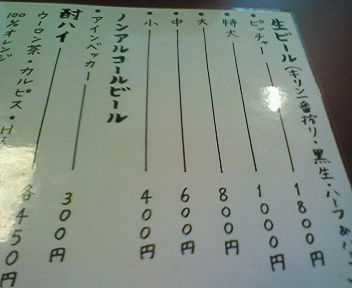 生ビール(キリン一番搾り・黒生・ハーフ&ハ
・ピッチャー 1800円
・特大 1000円
・大 800円
・中 600円
・小 400円
ノンアルコールビール
・アインベッカー 300円
酎ハイ
ウーロン茶・カルピス・ 各450円
100%オレンジ